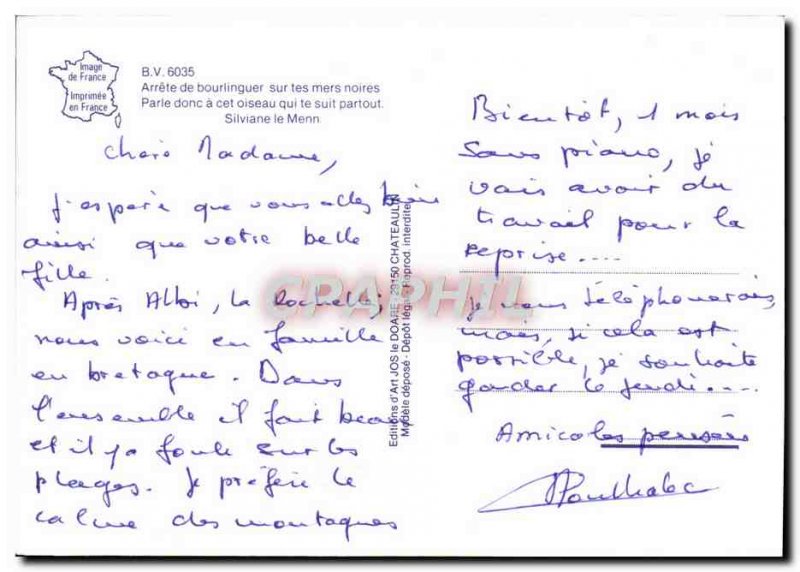 Image
de France
Imprimée
en France
B.V. 6035
Arrête de bourlinguer sur tes mers noires
Parle donc à cet oiseau qui te suit partout.
Silviane le Menn
Chère Madame,
J'espère que vous allez bien
ainsi que votre belle
fille.
Après Albi, la Rochelle,
nous voici en famille
en bretagne. Dans
l'ensemble il fait beau
et il y a foule sur les
plages. Je préfère le
calme des montagnes
Editions d'Art JOS le DOARE - 29150 CHATEAULIN
Modèle déposé - Dépôt légal - Reprod. interdite
Bientôt, 1 mois
sans piano, je
vais avoir du
travail pour la
reprise....
Je vous téléphonerais,
mais, si cela est
possible, je souhaite
garder le jeudi....
Amicales pensées
CPAPHIL